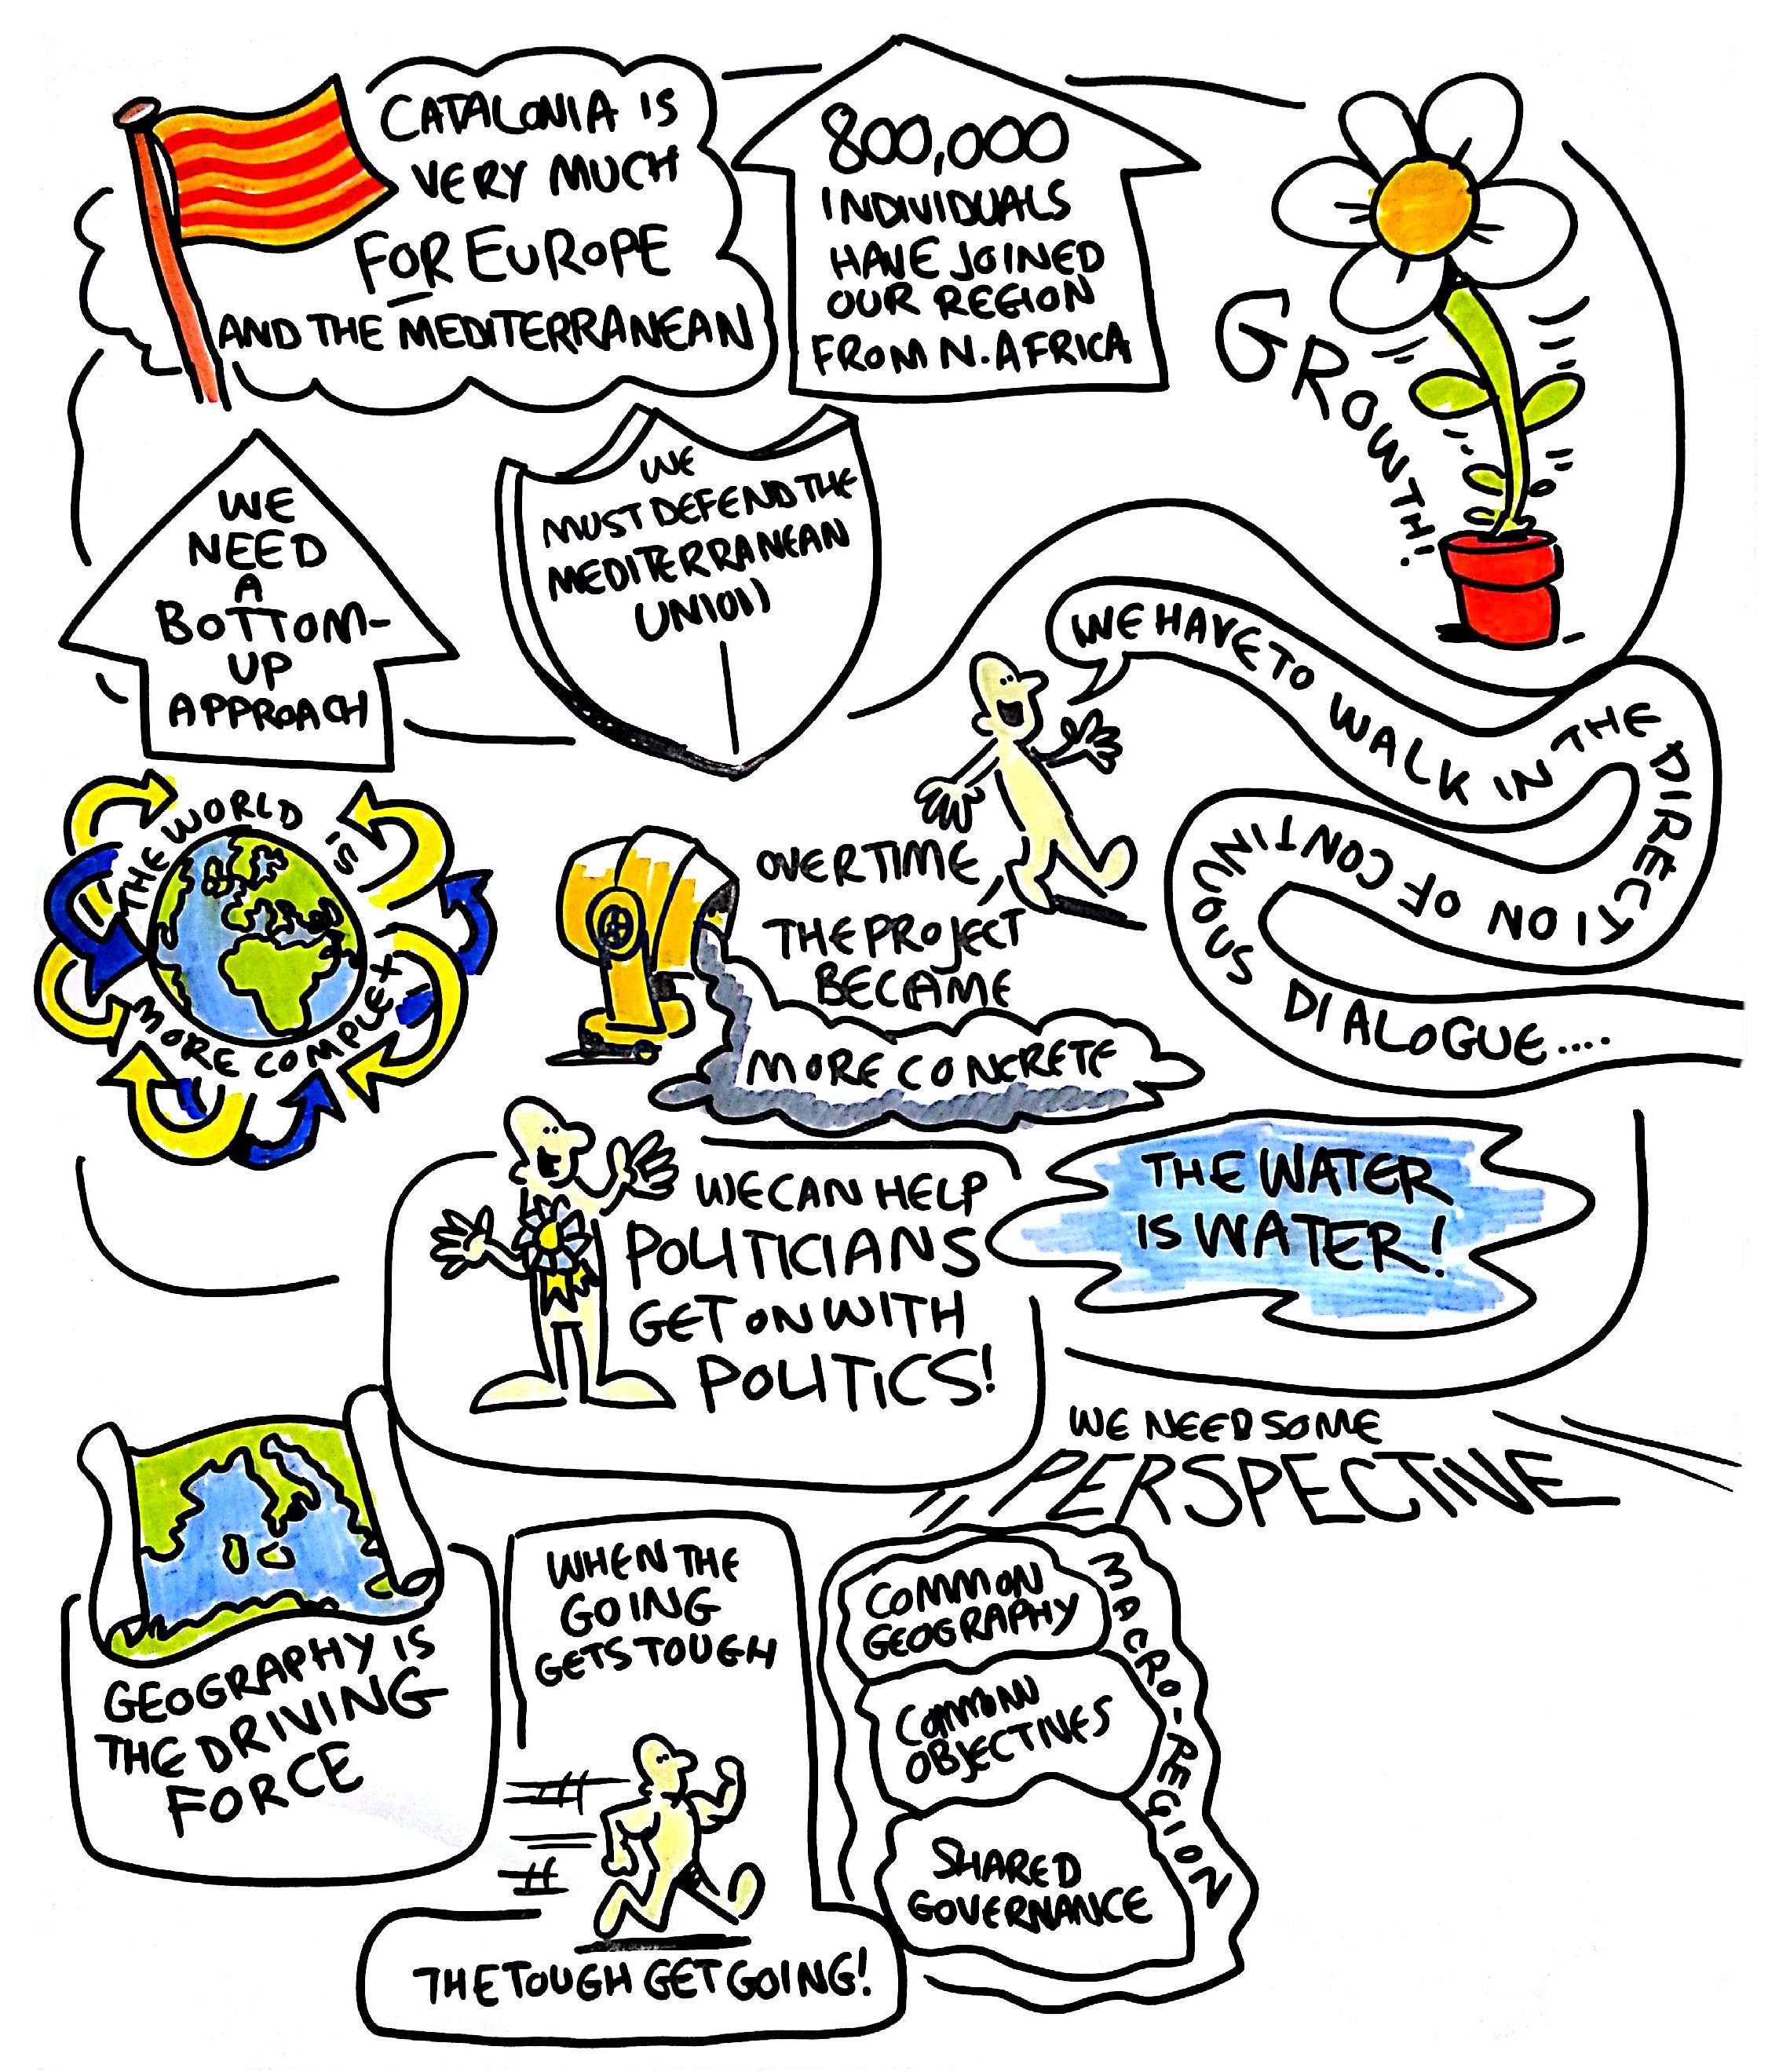 CATALONIA IS
VERY MUCH
FOR EUROPE
AND THE MEDITERRANEAN
800,000
INDIVIDUALS
HAVE JOINED
OUR REGION
FROM N. AFRICA
GROWTH!
WE
NEED
A
BOTTOM-
UP
APPROACH
WE
MUST DEFEND THE
MEDITERRANEAN
UNION
WE HAVE TO WALK IN THE DIRECTION OF CONTINUOUS DIALOGUE....
THE WORLD IS
MORE COMPLEX
OVER TIME
THE PROJECT
BECAME
MORE CONCRETE
WE CAN HELP
POLITICIANS
GET ON WITH
POLITICS!
THE WATER
IS WATER!
WE NEED SOME
PERSPECTIVE
GEOGRAPHY IS
THE DRIVING
FORCE
WHEN THE
GOING
GETS TOUGH
THE TOUGH GET GOING!
MACRO-REGION
COMMON
GEOGRAPHY
COMMON
OBJECTIVES
SHARED
GOVERNANCE